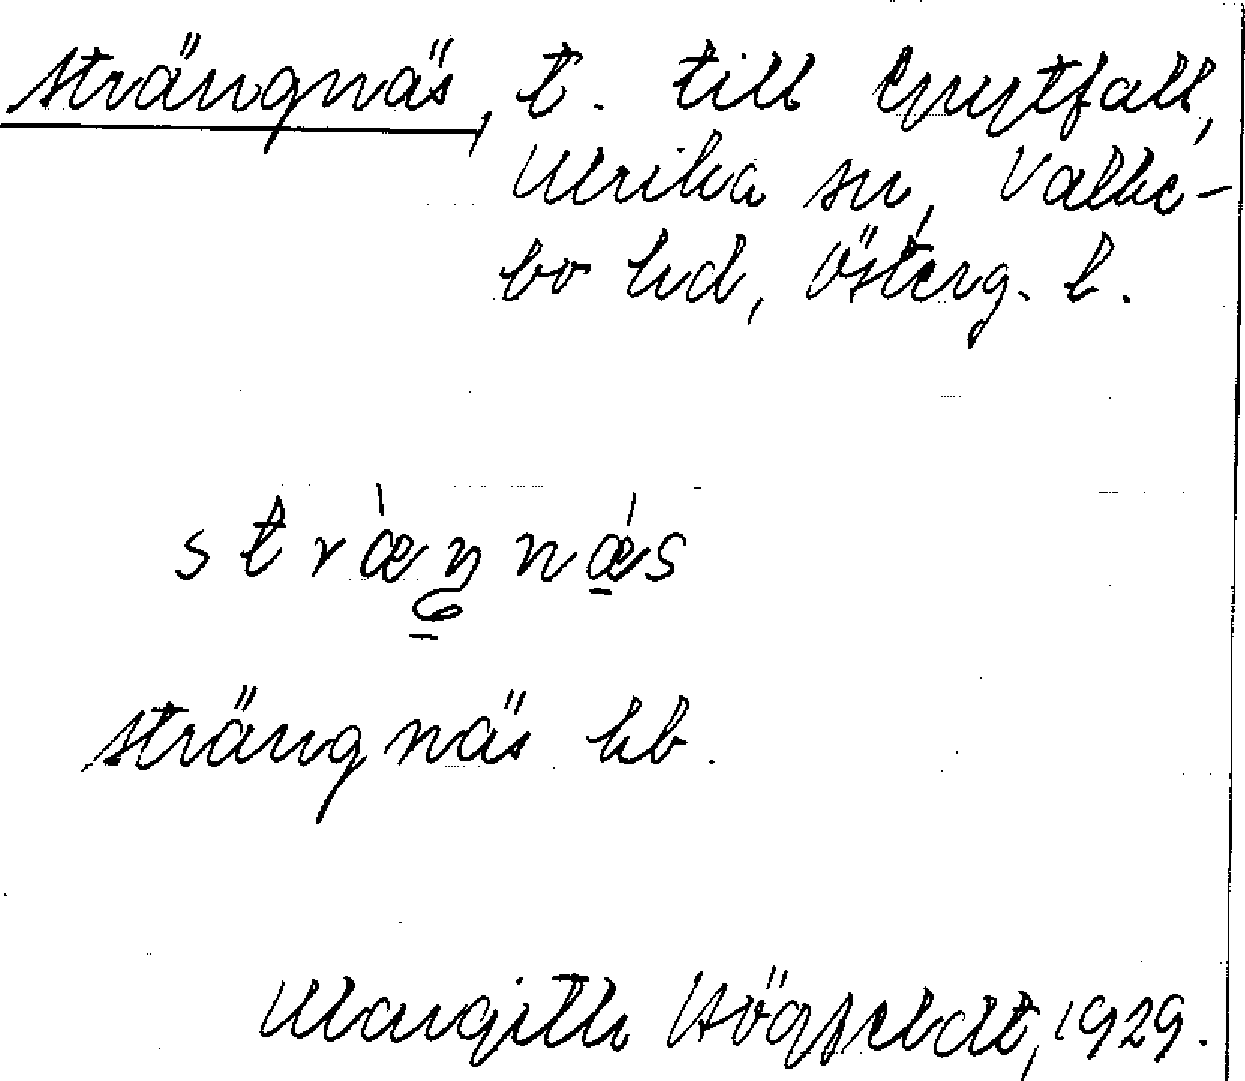 Strängnäs, t. till Grytfall,
Ulrika sn, Valke-
bo hd, Österg. l.
stræŋnæs
Strängnäs kb.
Margith Högfeldt, 1929.